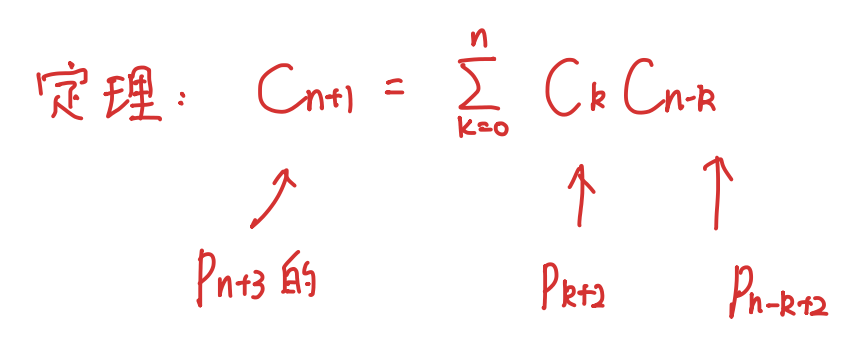 定理: C_{n+1} = \sum_{k=0}^{n} C_k C_{n-k}
P_{n+3}的 P_{k+2} P_{n-k+2}